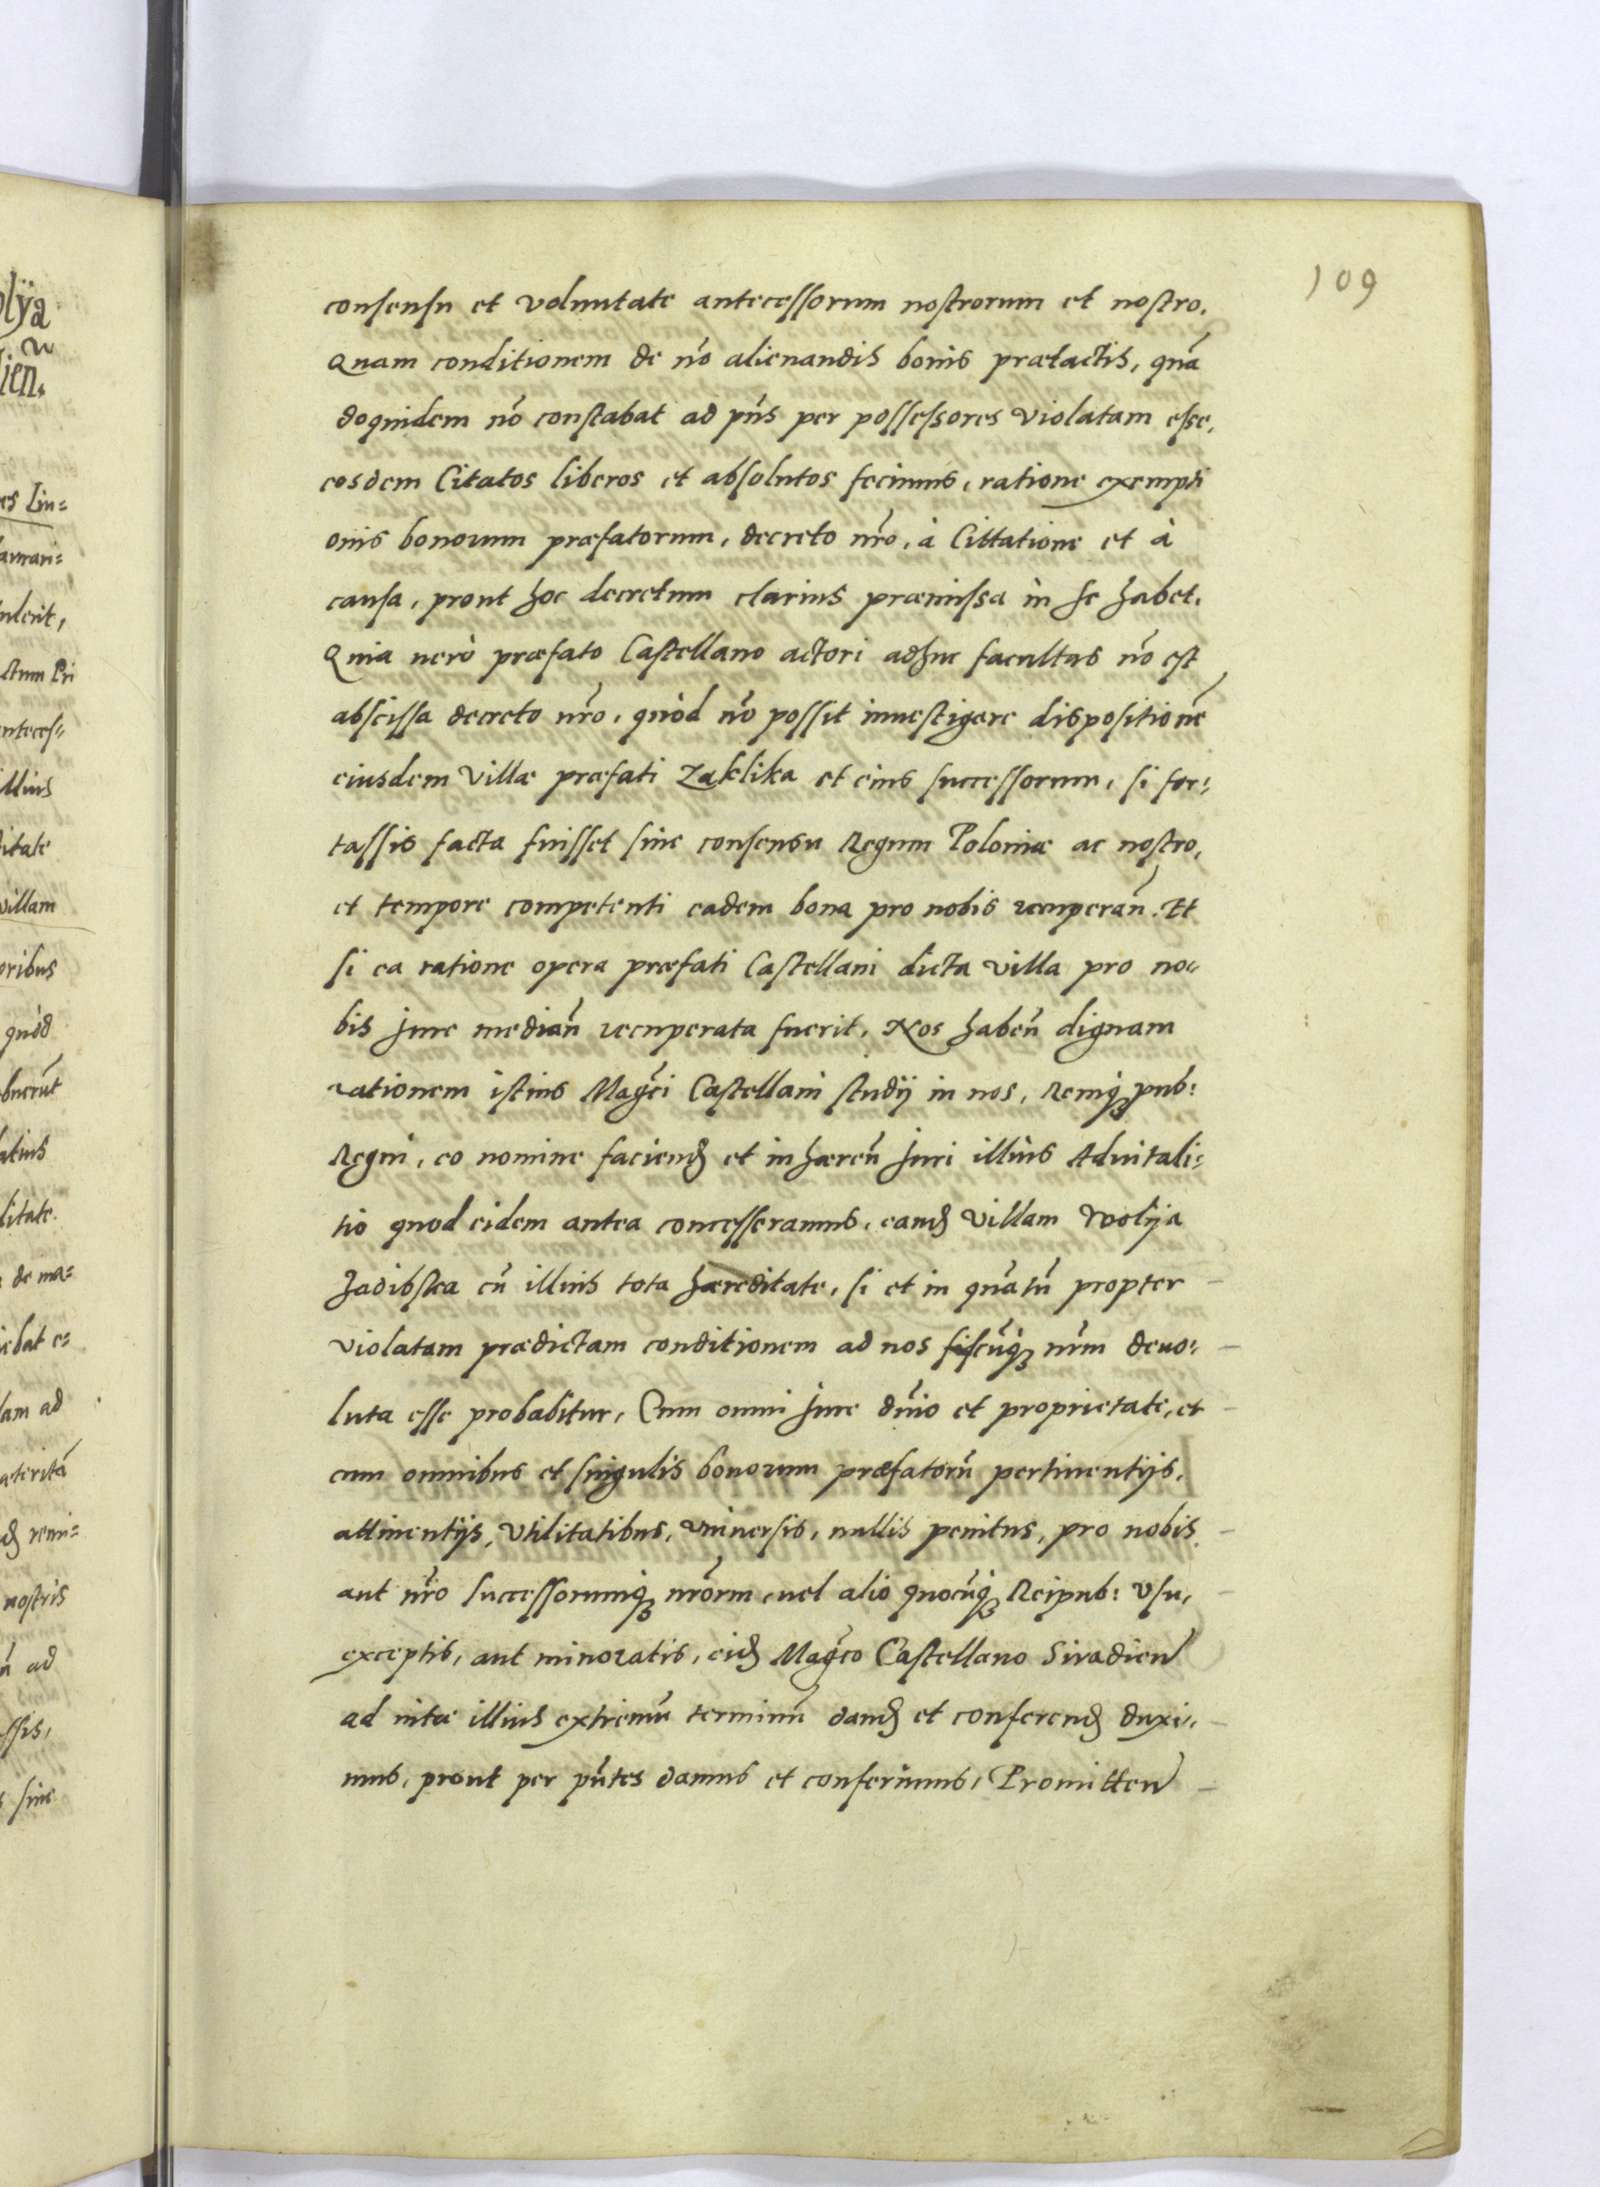 109
consensu et voluntate antecessorum nostrorum et nostro.
Quam conditionem de nõ alienandis bonis prætactis, quã
doquidem nõ constabat ad pñs per possessores violatam esse,
eosdem Citatos liberos et absolutos fecimus, ratione exempti
onis bonorum præfatorum, decreto nr̃o, à Cittatione et à
causa, prout hoc decretum clarius præmissa in se habet.
Quia verò præfato Castellano actori adhuc facultas nõ est
abscissa decreto nr̃o, quòd nõ possit inuestigere dispositionẽ
eiusdem villæ præfati Zaklika et eius successorum, si for=
tassis facta fuisset sine consensu Regum Poloniæ ac nostro,
et tempore competenti eadem bona pro nobis recuperañ. Et
si ea ratione opera præfati Castellani dicta villa pro no=
bis jure mediañ recuperata fuerit, Nos habeñ dignam
rationem istius Magci Castellani studij in nos, Remq; pub:
Regni, eo nomine faciend et inhæreñ juri illius Aduitali=
tio quod eidem antea concesseramus, eand villam Wolija
Jadibska cũ illius tota hæreditate, si et in quãtũ propter
violatam prædictam conditionem ad nos fiscũq; nr̃m deuo=
luta esse probabitur, Cum omni jure dñio et proprietate, et
cum omnibus et singulis bonorum præfatorũ pertinentijs,
attinentijs, vtilitatibus, vniuersis, nullis penitus, pro nobis
aut nr̃o successorumq; nr̃orm, uel alio quocũq; Reipub: vsu,
exceptis, aut minoratis, eid Magco Castellano Siradień
ad uitæ illius extremũ terminũ dand et conferend duxi=
mus, prout per pñtes damus et conferimus, Promitteñ
olÿa
ien.
es Lin=
nderit,
ctum Pri
anteces=
illius
ditate
villam
oribus
quòd
buerũt
litate.
de ma=
lam ad
æteritã
nostris
ad
ssis,
sine